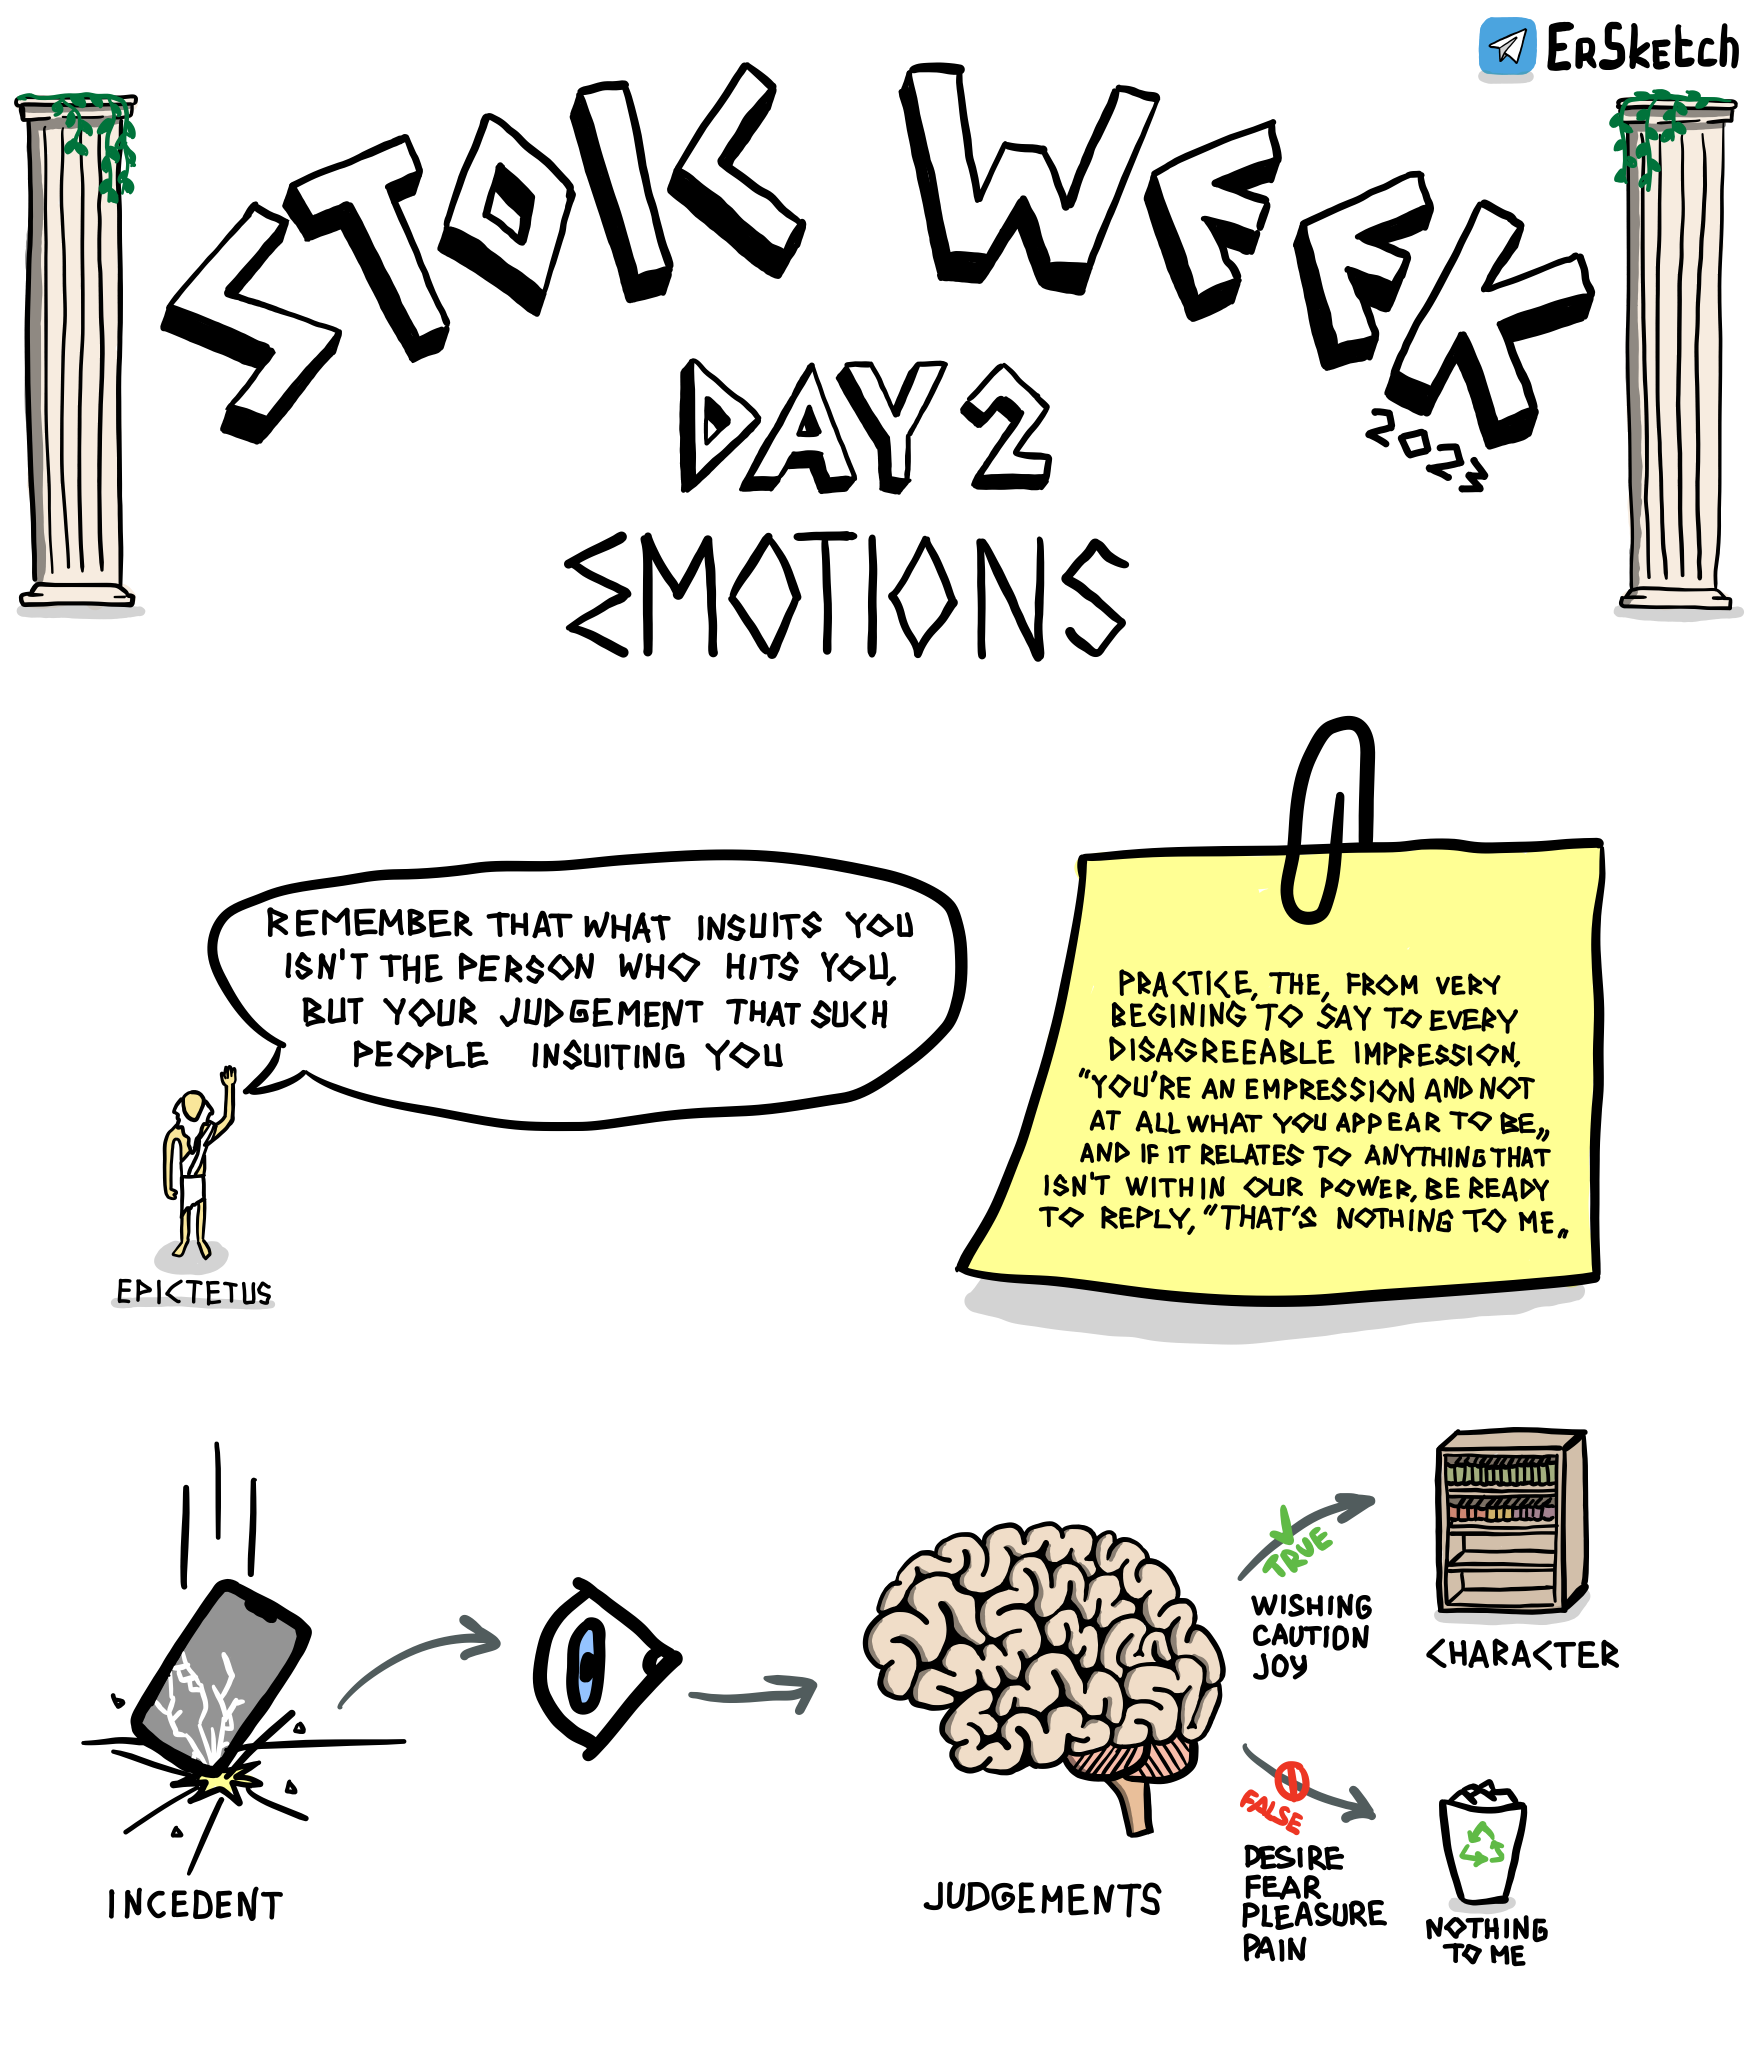 ErSketch
STOIC WEEK
2023
DAY 2
EMOTIONS
REMEMBER THAT WHAT INSUITS YOU
ISN'T THE PERSON WHO HITS YOU,
BUT YOUR JUDGEMENT THAT SUCH
PEOPLE INSUITING YOU
EPICTETUS
PRACTICE, THE, FROM VERY
BEGINING TO SAY TO EVERY
DISAGREEABLE IMPRESSION,
"YOU'RE AN EMPRESSION AND NOT
AT ALL WHAT YOU APPEAR TO BE„
AND IF IT RELATES TO ANYTHING THAT
ISN'T WITHIN OUR POWER, BE READY
TO REPLY, "THAT'S NOTHING TO ME„
INCEDENT
JUDGEMENTS
TRUE
WISHING
CAUTION
JOY
CHARACTER
FALSE
DESIRE
FEAR
PLEASURE
PAIN
NOTHING
TO ME